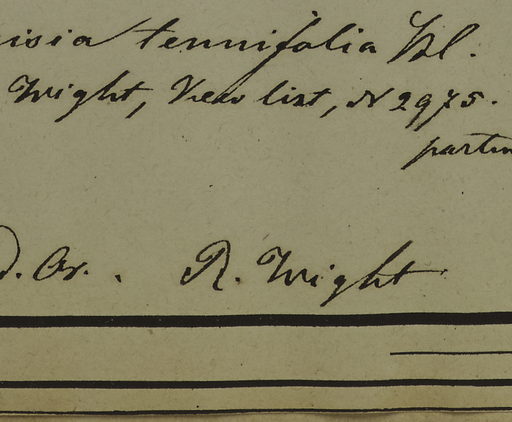 isia tennifolia Bl.
Wight, View list, N 2975.
partim
d. Or. . R. Wight